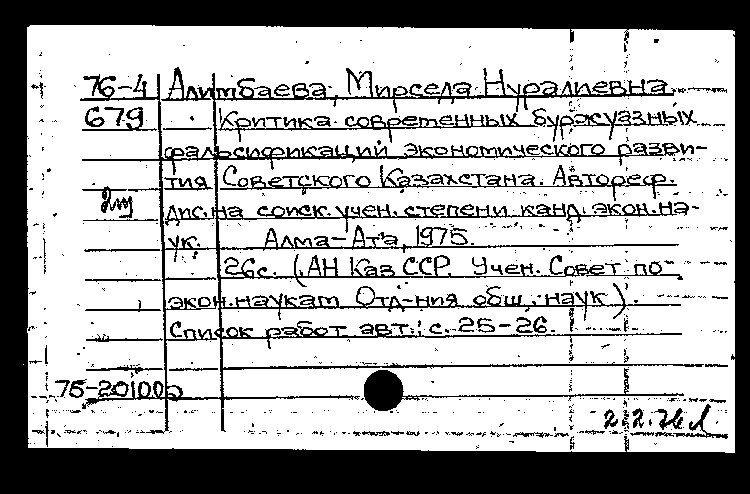 76-4 Алимбаева, Мирседа Нуралиевна.
679 Критика современных буржуазных
фальсификаций экономического разви-
тия Советского Казахстана. Автореф.
дис. на соиск. учен. степени канд. экон. на-
ук. Алма-Ата, 1975.
26с. (АН КазССР. Учен. Совет по
экон. наукам Отд-ния общ. наук).
Список работ авт.: с. 25-26.
75-20100